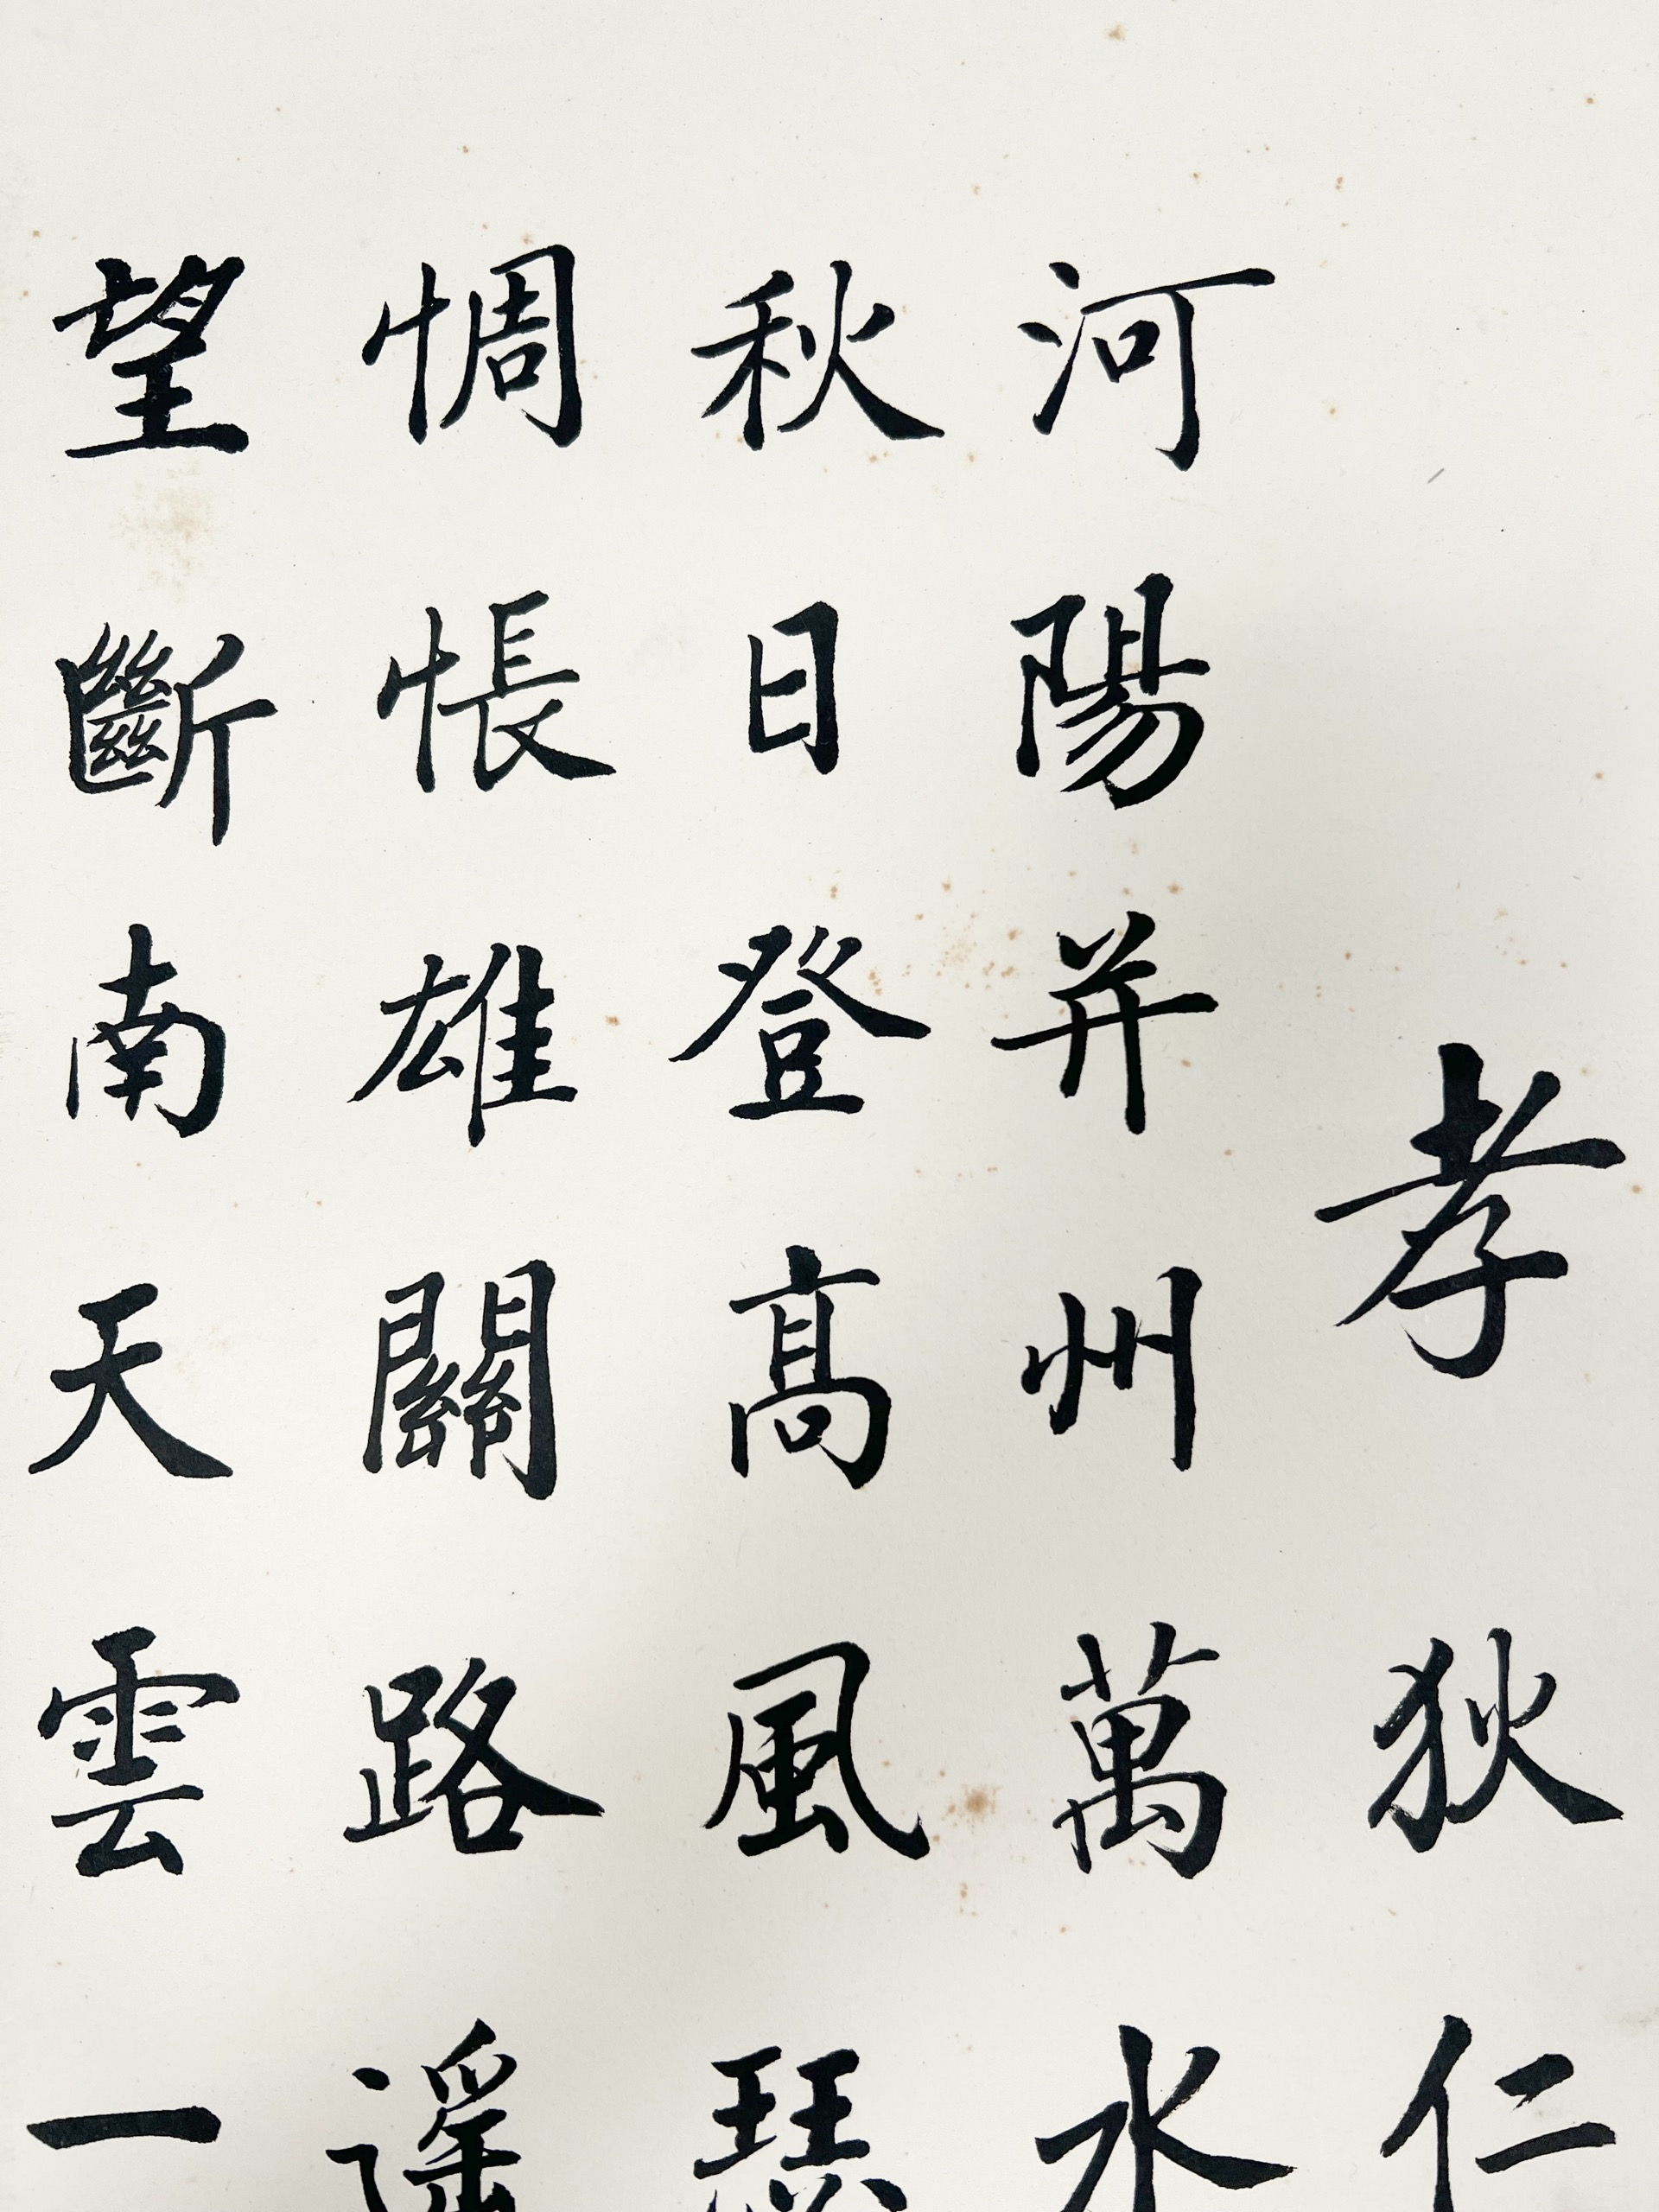 孝狄仁
河陽并州萬水
秋日登高風瑟
惆悵雄關路遥
望斷南天雲一